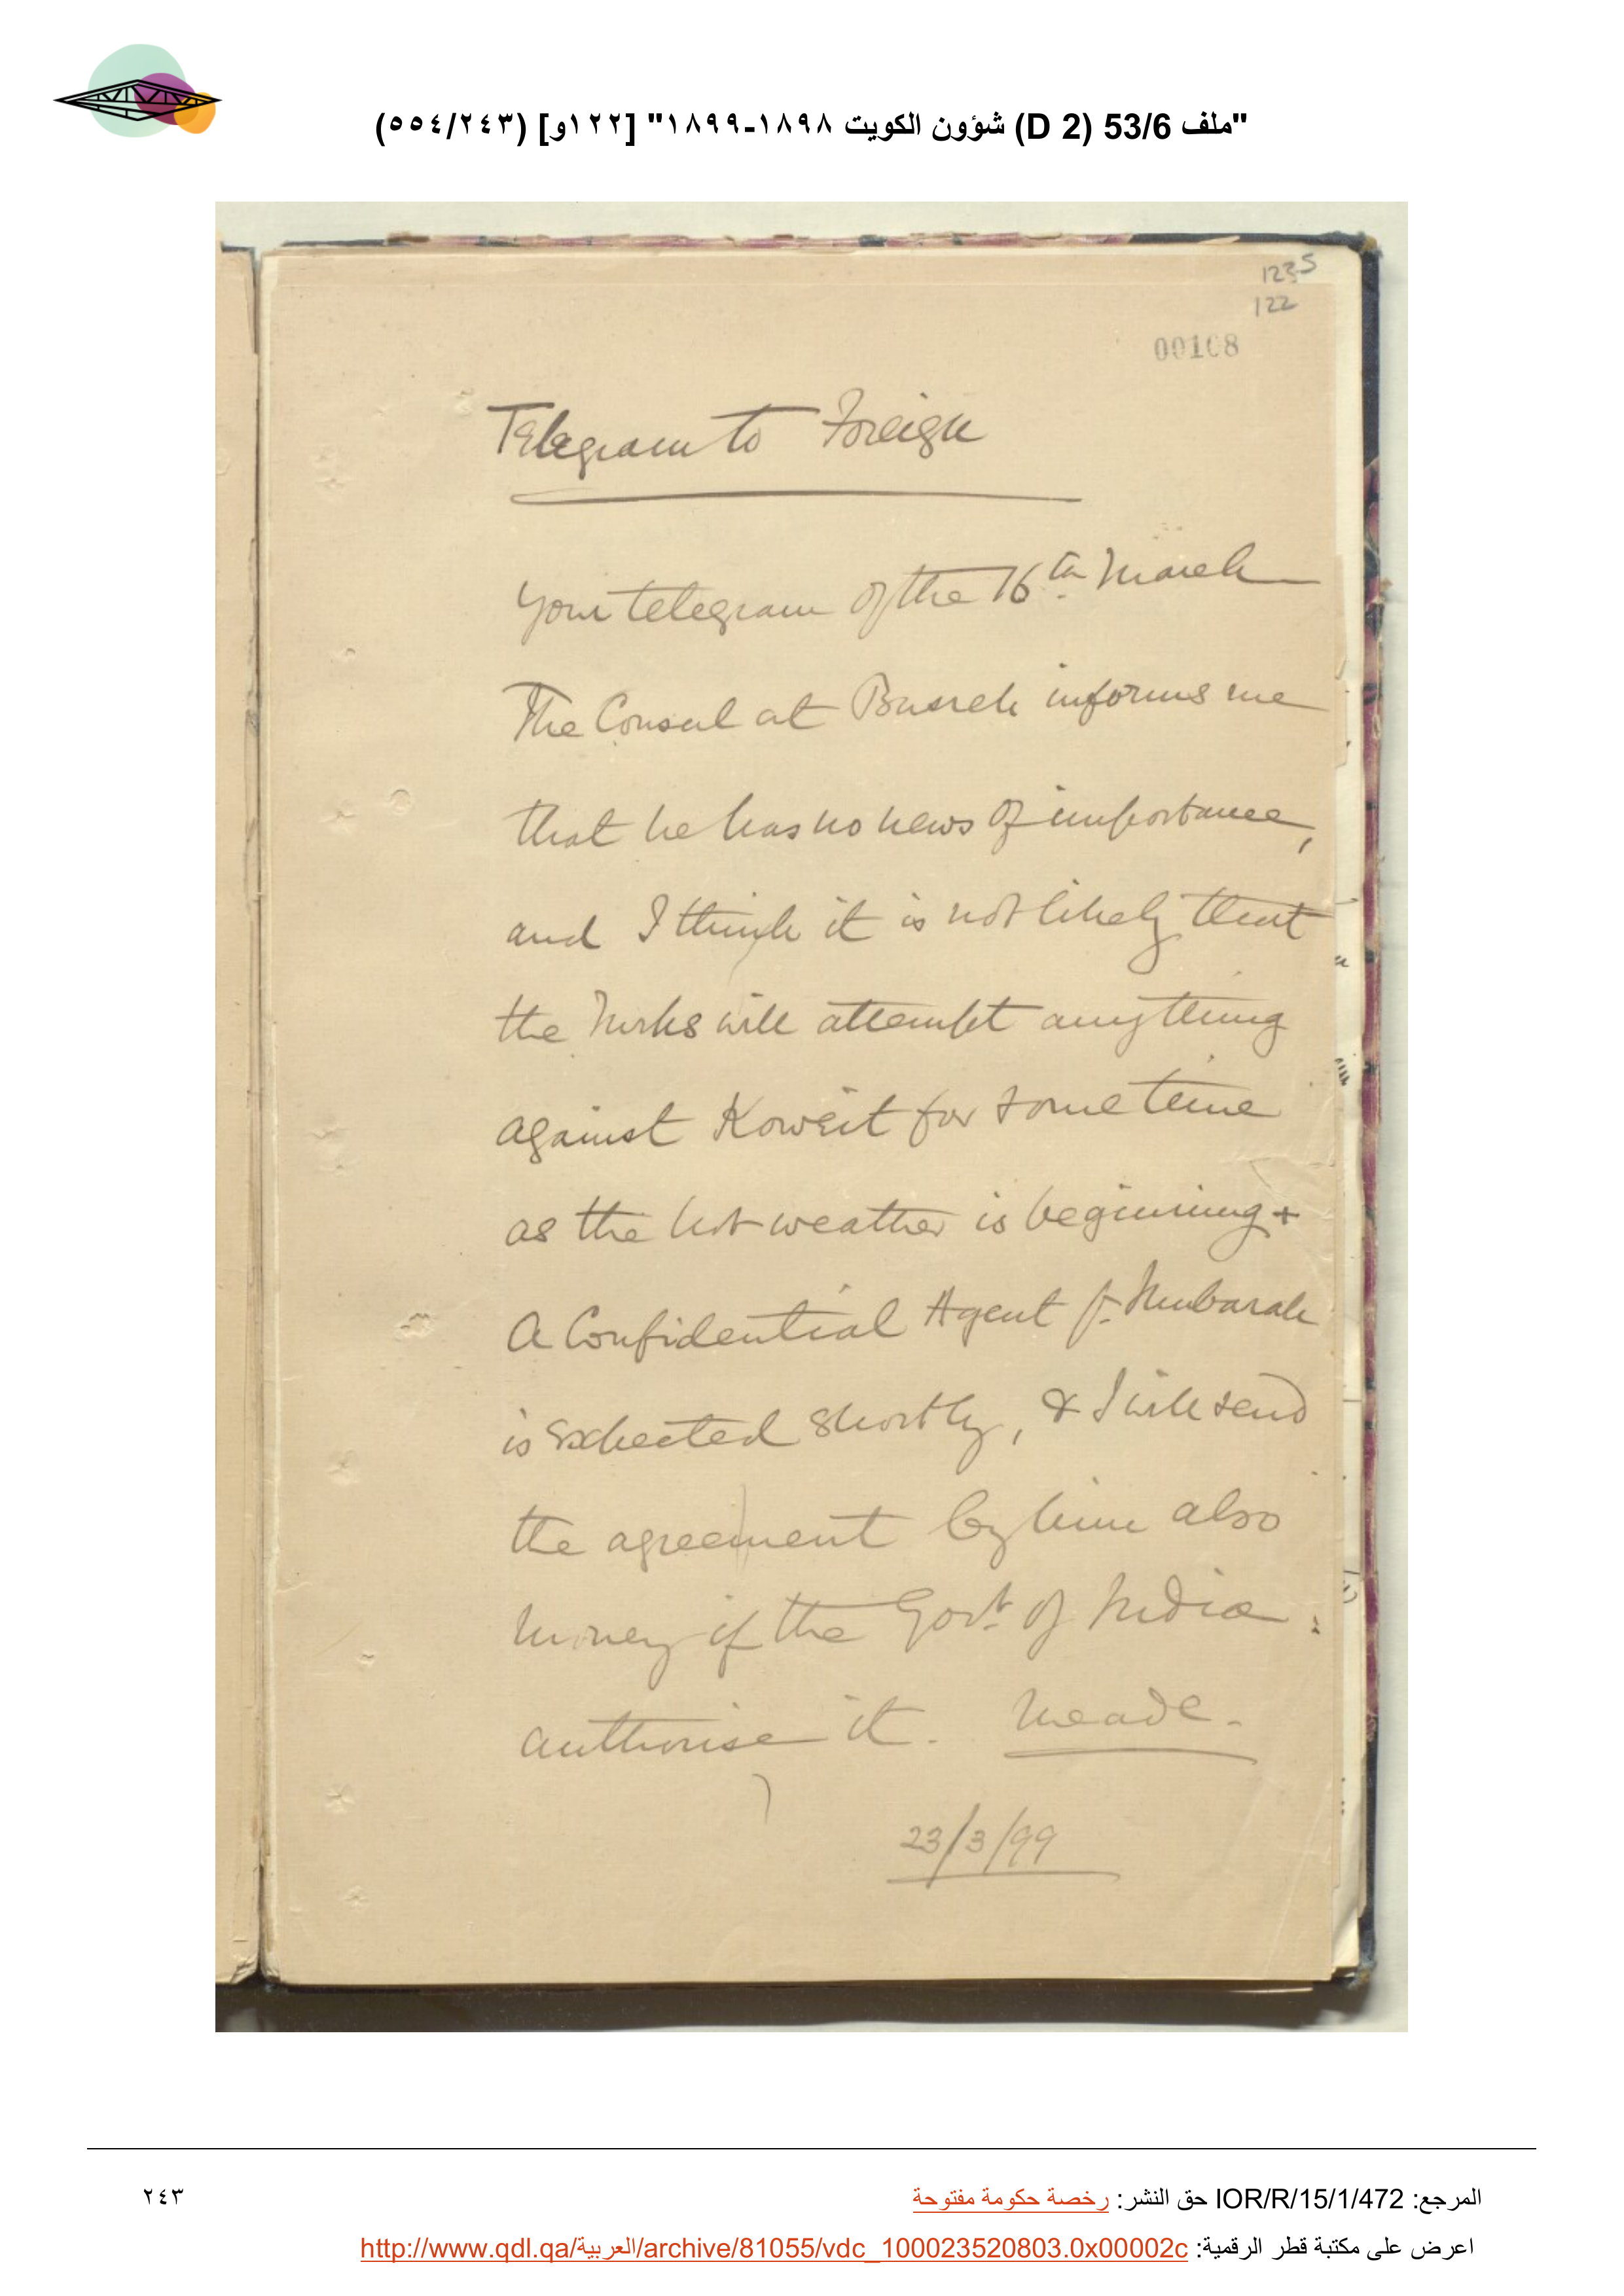 "ملف 53/6 (D 2) شؤون الكويت ١٨٩٨-١٨٩٩" [١٢٢و] (٥٥٤/٢٤٣)
1235
122
00108
Telegram to Foreign
Your telegram of the 16th March
The Consul at Busreh informs me
that he has no news of importance,
and I think it is not likely that
the Turks will attempt anything
against Koweit for some time
as the hot weather is beginning +
A Confidential Agent fr. Mubarak
is expected shortly, & I will send
the agreement by him also
money if the Govt. of India
authorise it. Meade.
23/3/99
المرجع: IOR/R/15/1/472 حق النشر: رخصة حكومة مفتوحة
٢٤٣
اعرض على مكتبة قطر الرقمية: http://www.qdl.qa/العربية/archive/81055/vdc_100023520803.0x00002c